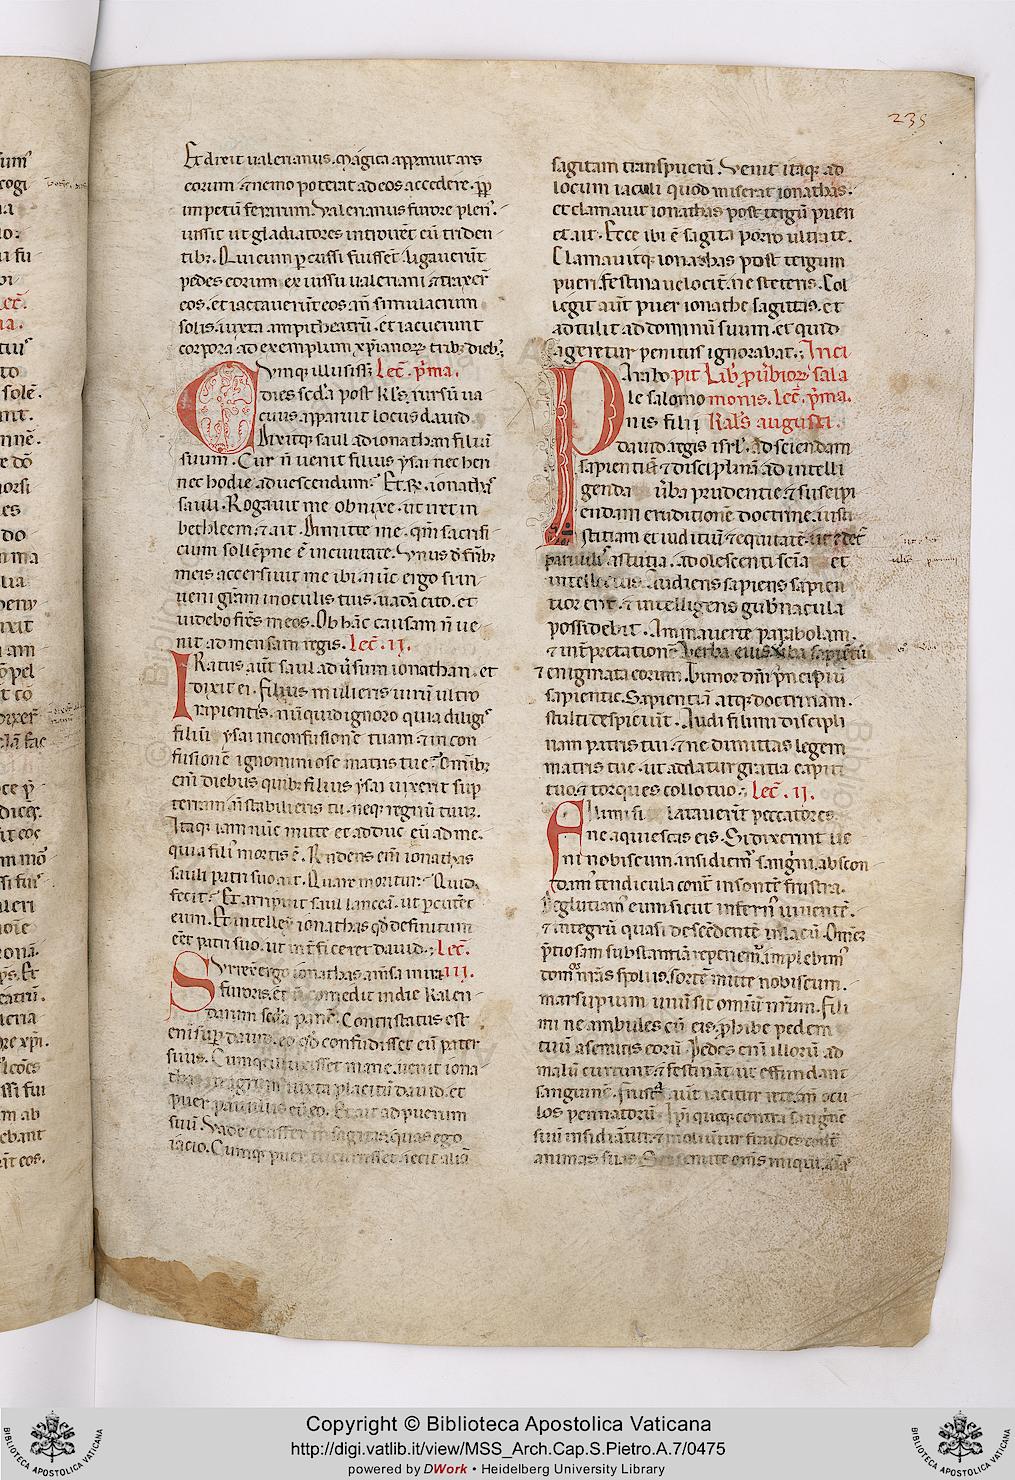 235
Et dixit ualerianus. Magica apparuit ars
eorum ⁊ nemo poterat ad eos accedere. ꝓp
impetũ ferarum. Valerianus furore plen᷒.
iussit ut gladiatores introirẽt cũ triden
tibꝫ. Qui cum ꝑcussi fuissẽt. ligauerũt
pedes eorum ex iussu ualeriani ⁊ traxer̃
eos. et iactauerũt eos añ simulacrum
solis. iuxta ampitheatrũ. et iacuerunt
corpora ad exemplum xp̃ianoꝝ tribꝫ diebꝫ.
Vmqꝫ illuxissꝫ Lec̃. p̃ma.
dies scd̃a post kl̃s. rursũ ua
cuus apparuit locus dauid.
Dixitqꝫ saul ad ionathan filiũ
suum. Cur ñ uenit filius ysai nec heri
nec hodie ad uescendum? Et r̃. ionathas
sauli. Rogauit me obnixe. ut iret in
bethleem. ⁊ ait. Dimitte me. qm̃ sacrifi
cium sollẽpne ẽ in ciuitate. Vnus d̃ fr̃ibꝫ
meis accersiuit me ibi. nũc ergo si in
ueni gr̃am in oculis tuis. uadã cito. et
uidebo fr̃es meos. Ob hãc causam ñ ue
nit ad mensam regis. Lec̃. II.
IRatus aũt saul aduersum ionathan. et
dixit ei. Filius mulieris uirũ ultro
rapientis. nũquid ignoro quia diligis
filiũ ysai in confusionẽ tuam. ⁊ in con
fusionẽ ignominiose matris tue? Om̃ibꝫ
em̃ diebus quibꝫ filius ysai uixerit sup
terram. ñ stabilieris tu. neqꝫ regnũ tuũ.
Itaqꝫ iam nũc mitte et adduc eũ ad me.
quia fili᷒ mortis ẽ. Rñdens em̃ ionathas
sauli patri suo ait. Quare morietur? Quid
fecit? Et arripuit saul lanceã. ut ꝑcuteret
eum. Et intellexit ionathas qd̃ definitum
eẽt patri suo. ut int̃ficeret dauid. Lec̃.
SVrrexit ergo ionathas a m̃sa in ira III.
furoris. et ñ comedit in die kalen
darum scd̃a panẽ. Contristatus est
eni᷒ sup dauid. eo qd̃ confudisset eũ pater
suus. Cumqꝫ illuxisset mane. uenit iona
thas in agrum iuxta placitũ dauid. et
puer paruulus cũ eo. Et ait ad puerum
suũ. Vade et affer m̃ sagittas quas ego
iacio. Cumqꝫ puer cucurrisset. iecit aliã
sagitam trans puerũ. Venit itaqꝫ ad
locum iaculi quod miserat ionathas.
et clamauit ionathas post tergũ pueri
et ait. Ecce ibi ẽ sagita porro ultra te.
Clamauitqꝫ ionathas post tergum
pueri. festina uelociter. ne steteris. Col
legit aũt puer ionathe sagittas. et
adtulit ad dominũ suum. et quid
ageretur penitus ignorabat. Inci
Arabo pit Lib̃ puerbioꝝ sala
le salomo monis. Lec̃. p̃ma.
nis filii kal̃s augusti.
dauid regis isrl̃. ad sciendam
sapientiã ⁊ disciplinã. ad intelli
genda uerba prudentie. ⁊ suscipi
endam eruditionẽ doctrine. iusti
tiam et iuditiũ ⁊ equitatẽ. ut det᷒
paruulis astutia. adolescenti scĩa et
intellectus. Audiens sapiens sapien
tior erit. ⁊ intelligens gub̃nacula
possidebit. Animauerte parabolam.
⁊ int̃pretationẽ. Verba eius uerba sapientũ
⁊ enigmata eorum. Timor dñi p̃ncipiũ
sapientie. Sapientiam atqꝫ doctrinam.
stulti despiciũt. Audi fili mi discipli
nam patris tui. ⁊ ne dimittas legem
matris tue. ut addatur gratia capiti
tuo. ⁊ torques collo tuo. Lec̃. II.
FIli mi si lactauerĩt peccatores
ne aquiescas eis. Si dixerint ue
ni nobiscum. insidiem᷒ sanguini. abscon
dam᷒ tendicula contra insontẽ frustra.
Deglutiam᷒ eum sicut infern᷒ uiuentẽ.
⁊ integrũ quasi descẽdentẽ in lacũ. Omẽ
p̃tiosam substantiã reperiem᷒. implebim᷒
domos nr̃as spoliis. sortẽ mitte nobiscum.
marsupium unũ sit omniũ nr̃um. Fili
mi ne ambules cũ eis. ꝓhibe pedem
tuũ a semitis eorũ. Pedes eni᷒ illorũ ad
malũ currunt. ⁊ festinãt ut effundant
sanguinẽ. Frustra aũt iacitur rete. añ ocu
los pennatorũ. Ipsi quoqꝫ contra sanguinẽ
suũ insidiantur. ⁊ moliuntur fraudes contr̃
animas suas.
Copyright © Biblioteca Apostolica Vaticana
http://digi.vatlib.it/view/MSS_Arch.Cap.S.Pietro.A.7/0475
powered by DWork • Heidelberg University Library
BIBLIOTECA APOSTOLICA VATICANA
BIBLIOTECA APOSTOLICA VATICANA